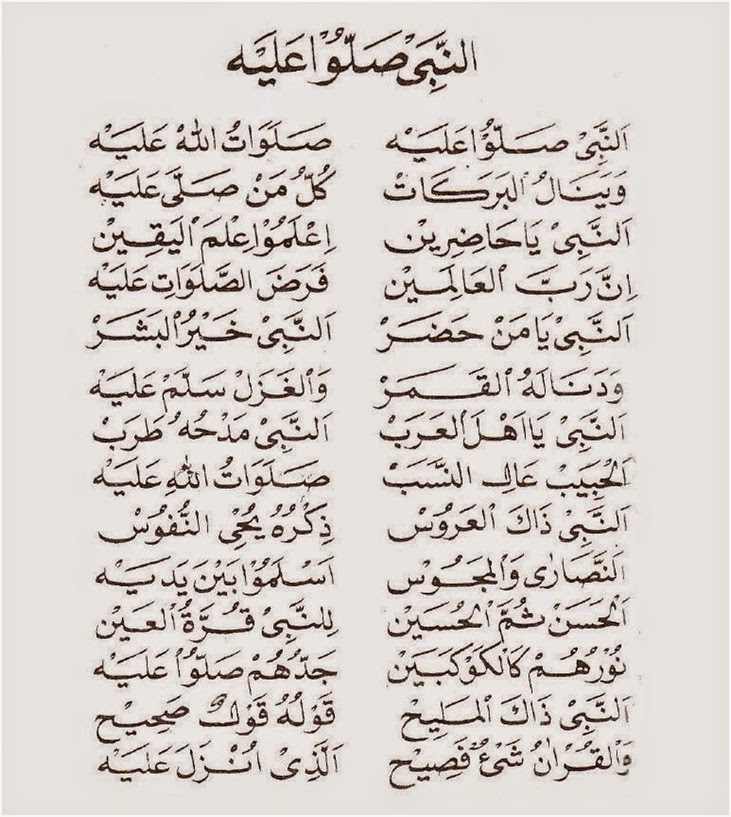 النَّبِيْ صَلُّوْا عَلَيْه
اَلنَّبِيْ صَلُّوْا عَلَيْه صَلَوَاتُ اللهْ عَلَيْه
وَيَنَالُ الْبَرَكَاتْ كُلُّ مَنْ صَلَّى عَلَيْه
اَلنَّبِيْ يَا حَاضِرِيْن اِعْلَمُوْا عِلْمَ الْيَقِيْن
اِنَّ رَبَّ الْعَالَمِيْن فَرَضَ الصَّلَوَاتِ عَلَيْه
اَلنَّبِيْ يَا مَنْ حَضَرْ اَلنَّبِيْ خَيْرُ الْبَشَرْ
وَدَنَا لَهُ الْقَمَرْ وَالْغَزَلْ سَلَّمْ عَلَيْه
اَلنَّبِيْ يَا اَهْلَ الْعَرَبْ اَلنَّبِيْ مَدْحُهُ طَرَبْ
اَلْحَبِيْبْ عَالِ النَّسَبْ صَلَوَاتُ اللهِ عَلَيْه
اَلنَّبِيْ ذَاكَ الْعَرُوْسْ ذِكْرُهُ يُحْيِ النُّفُوْسْ
اَلنَّصَارٰى وَالْمَجُوْسْ اَسْلَمُوْا بَيْنَ يَدَيْه
اَلْحَسَنْ ثُمَّ الْحُسَيْن لِلنَّبِيْ قُرَّةُ الْعَيْن
نُوْرُهُمْ كَالْكَوْكَبَيْن جَدُّهُمْ صَلُّوْا عَلَيْه
اَلنَّبِيْ ذَاكَ الْمَلِيْح قَوْلُهُ قَوْلٌ صَحِيْح
وَالْقُرْاٰنْ شَيْءٌ فَصِيْح اَلَّذِيْ اُنْزِلَ عَلَيْه